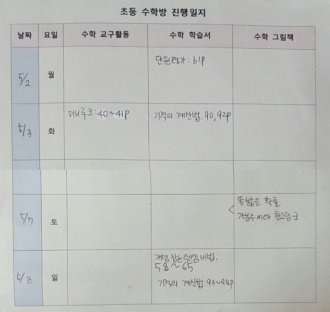 초등 수학방 진행일지
날짜 요일 수학 교구활동 수학 학습서 수학 그림책
5/2 월 단원평가: 61P
5/3 화 40~41P 기적의 계산법: 90, 92P
5/7 토 똑같은 확률
5/8 일
58~65
기적의 계산법: 93~94P